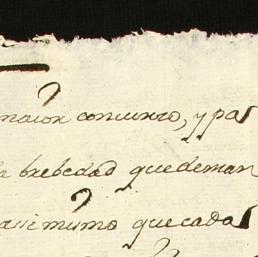 maior concurso, y pa
la brebedad que deman
asi mismo que cada